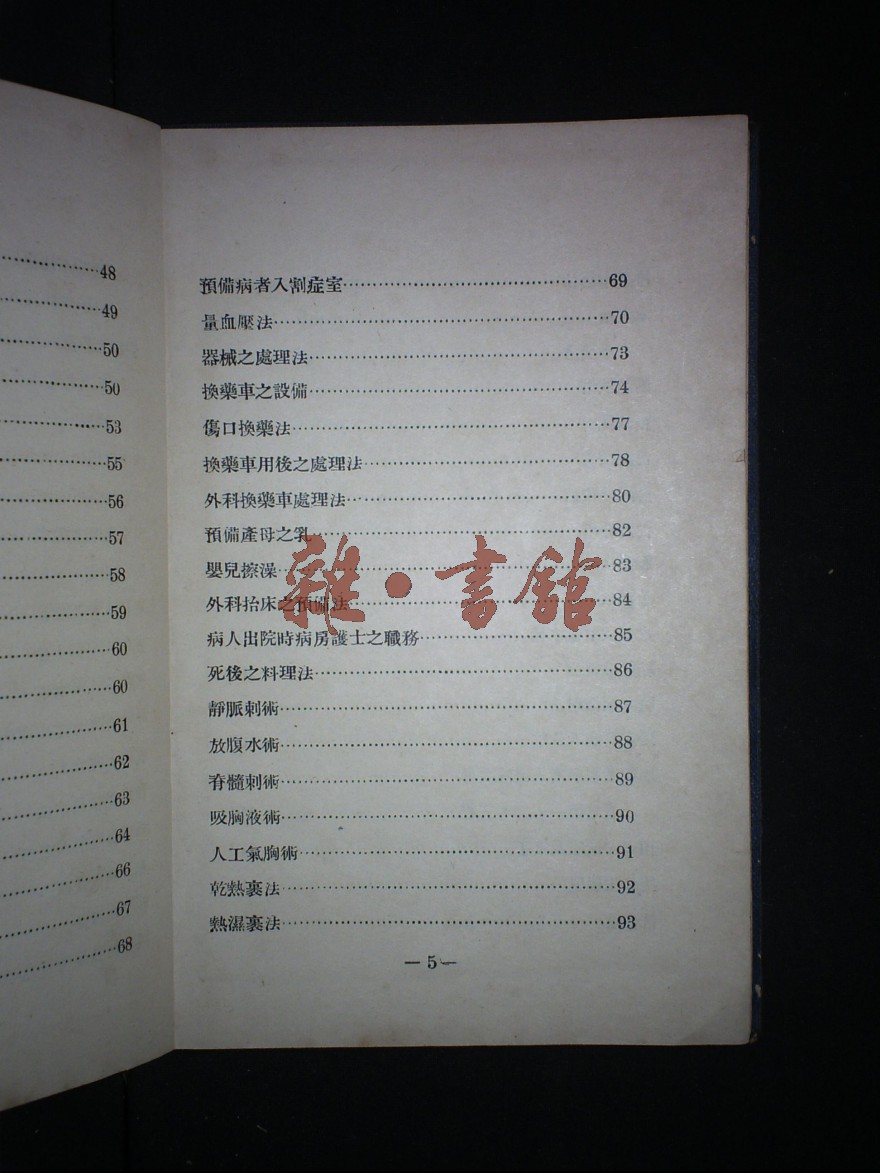 48
49
50
50
53
55
56
57
58
59
60
60
61
62
63
64
66
67
68
預備病者入割症室…………………………69
量血壓法…………………………70
器械之處理法…………………………73
換藥車之設備…………………………74
傷口換藥法…………………………77
換藥車用後之處理法…………………………78
外科換藥車處理法…………………………80
預備產母之乳…………………………82
嬰兒擦澡…………………………83
外科抬床之預備法…………………………84
病人出院時病房護士之職務…………………………85
死後之料理法…………………………86
靜脈刺術…………………………87
放腹水術…………………………88
脊髓刺術…………………………89
吸胸液術…………………………90
人工氣胸術…………………………91
乾熱裹法…………………………92
熱濕裹法…………………………93
— 5 —
雜·書館